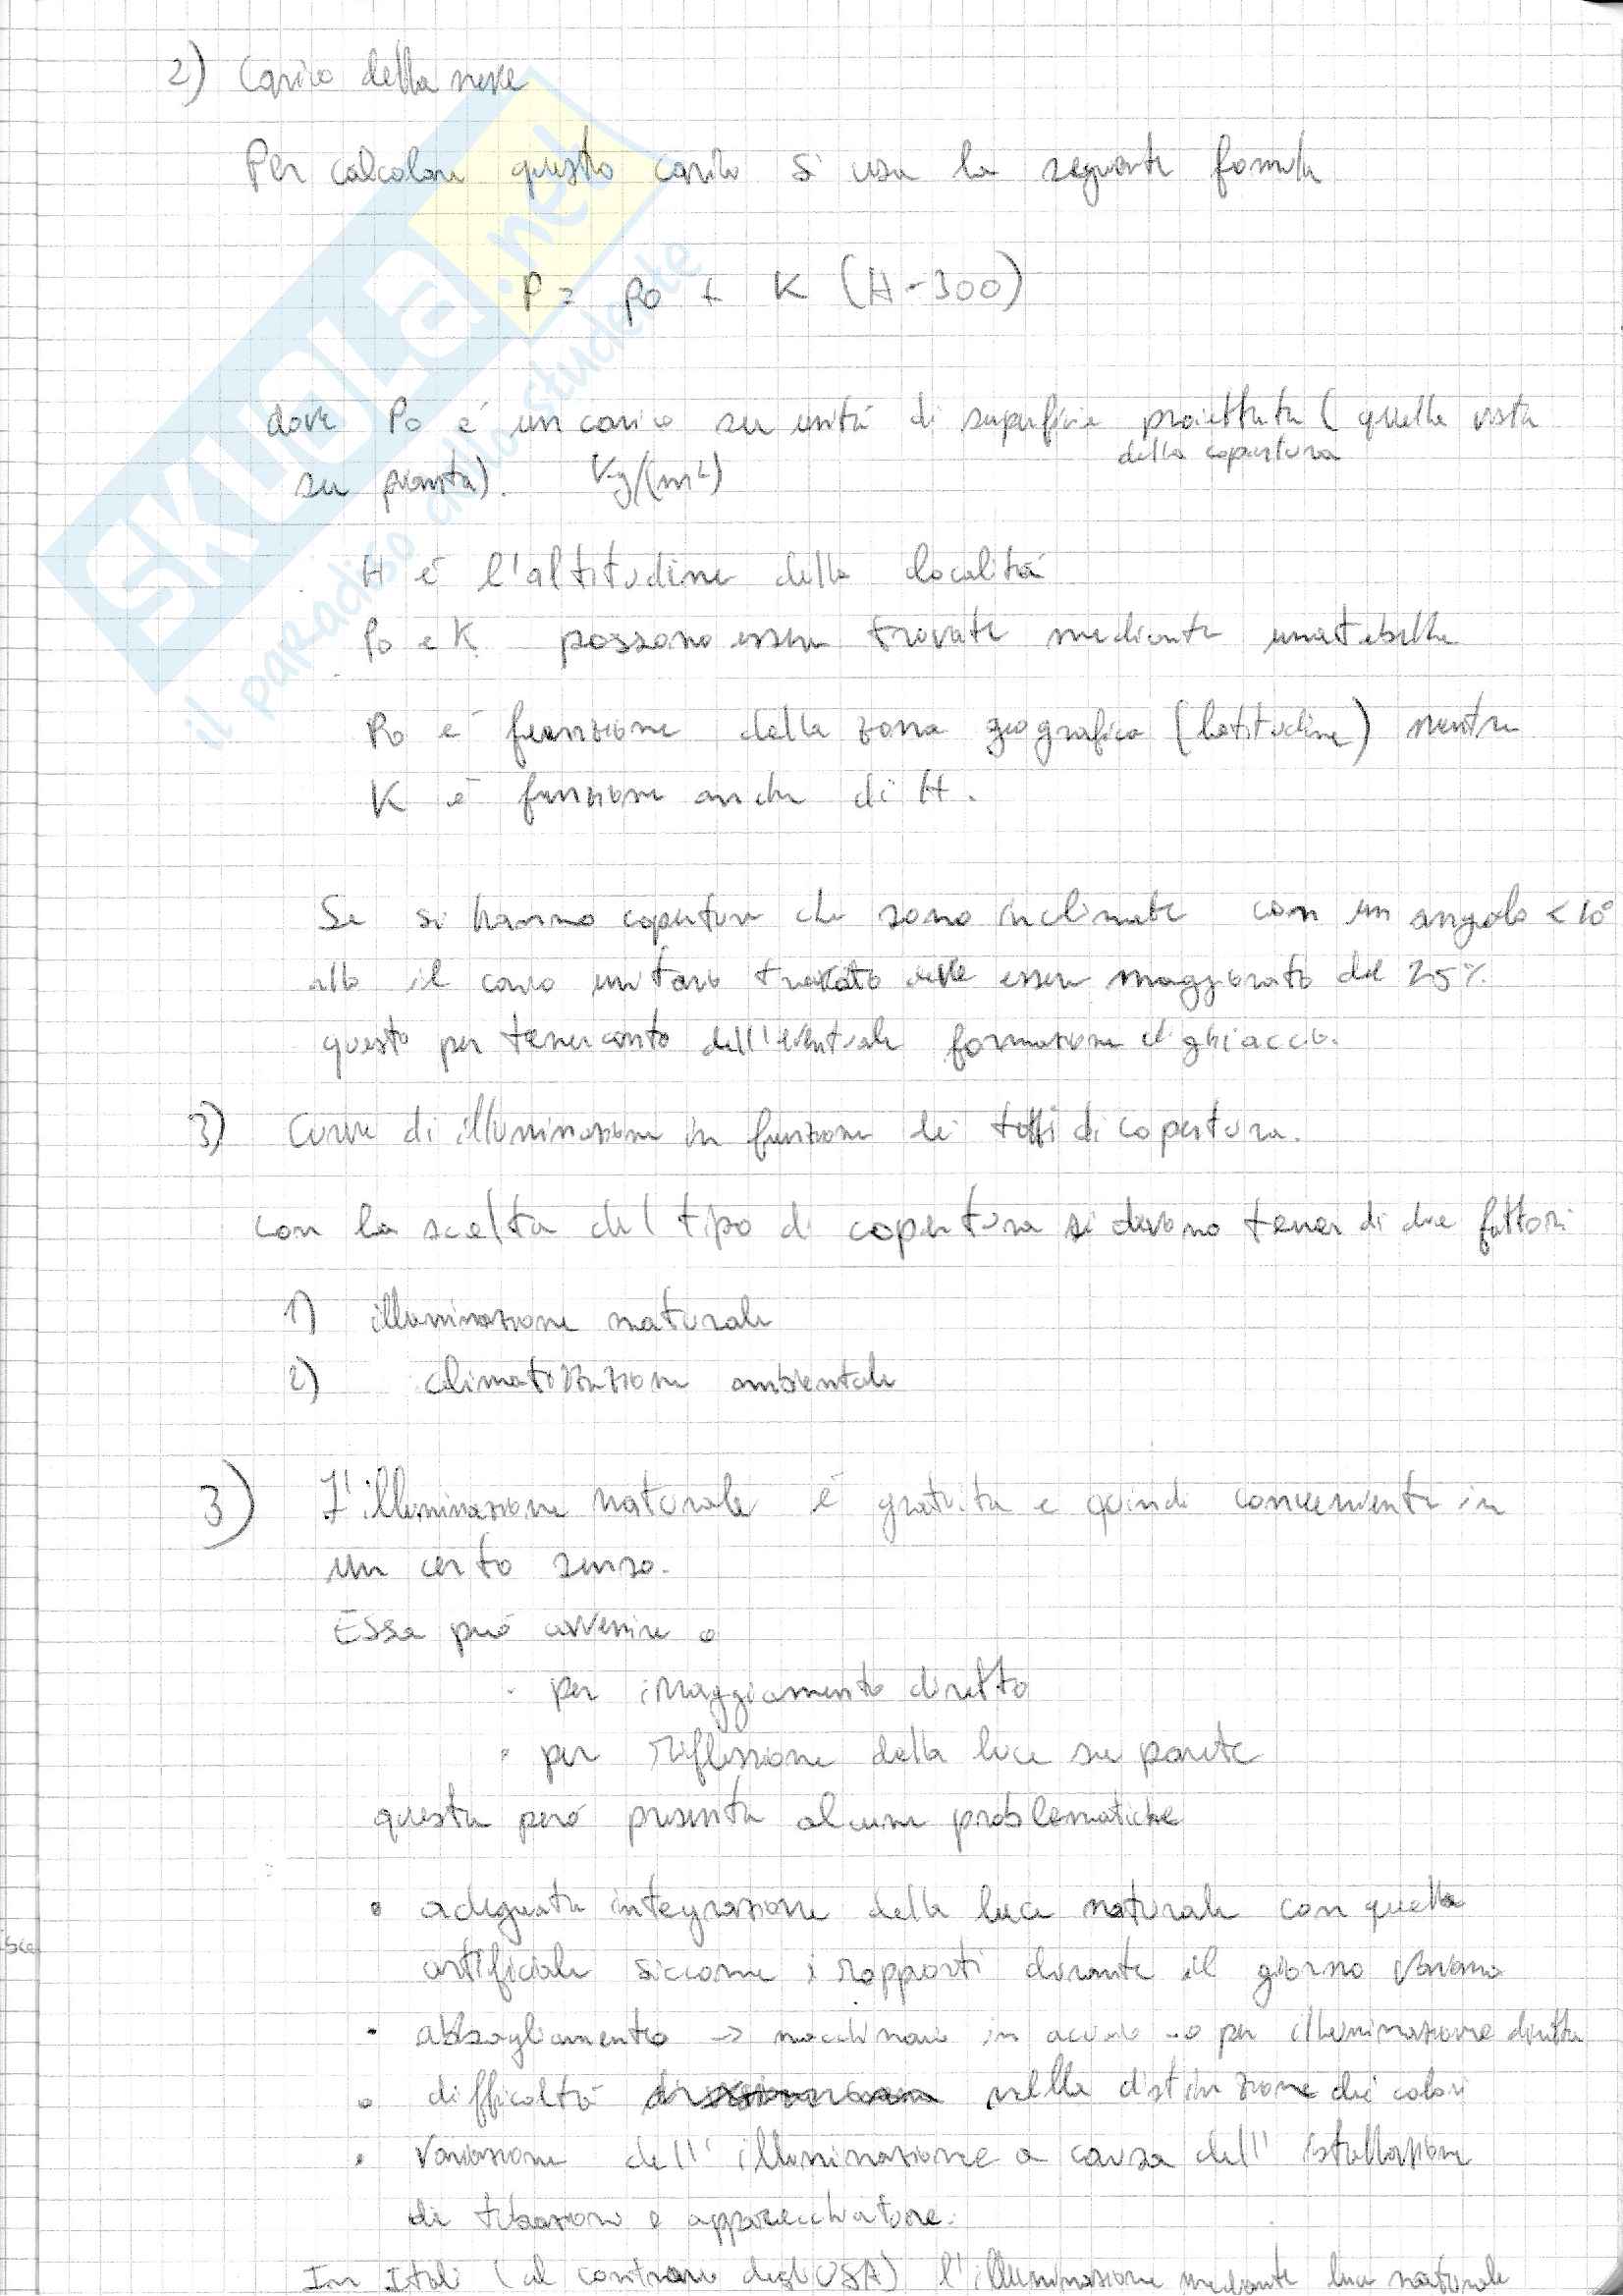 2) Carico della neve
Per calcolare questo carico si usa la seguente formula
P = p0 + K (H-300)
dove P0 é un carico su unitá di superficie proiettata (quella vista
della copertura
su pianta). Kg/(m²)
H é l'altitudine della localitá
P0 e K possono essere trovate mediante una tabella
P0 e' funzione della zona geografica (latitudine) mentre
K é funzione anche di H.
Se si hanno coperture che sono inclinate con un angolo < 10°
allo il carico unitario trovato deve essere maggiorato del 25%
questo per tener conto dell'eventuale formazione di ghiaccio.
3) Curve di illuminazione in funzione dei tetti di copertura.
con la scelta del tipo di copertura si devono tener di due fattori
1) illuminazione naturale
2) climatizzazione ambientale
3) L'illuminazione naturale é gratuita e quindi conveniente in
un certo senso.
Essa puó avvenire o
· per irraggiamento diretto
· per riflessione della luce su parete
questa peró presenta alcune problematiche
• adeguata integrazione della luce naturale con quella
artificiale siccome i rapporti durante il giorno variano
• abbagliamento -> macchinari in acciaio -o per illuminazione diretta
• difficoltá nella distinzione dei colori
• Variazione dell'illuminazione a causa dell'istallazione
di tubazioni e apparecchiature.
In Itali (al contrario degli USA) l'illuminazione mediante luce naturale
SKUOLA.net
il paradiso dello studente